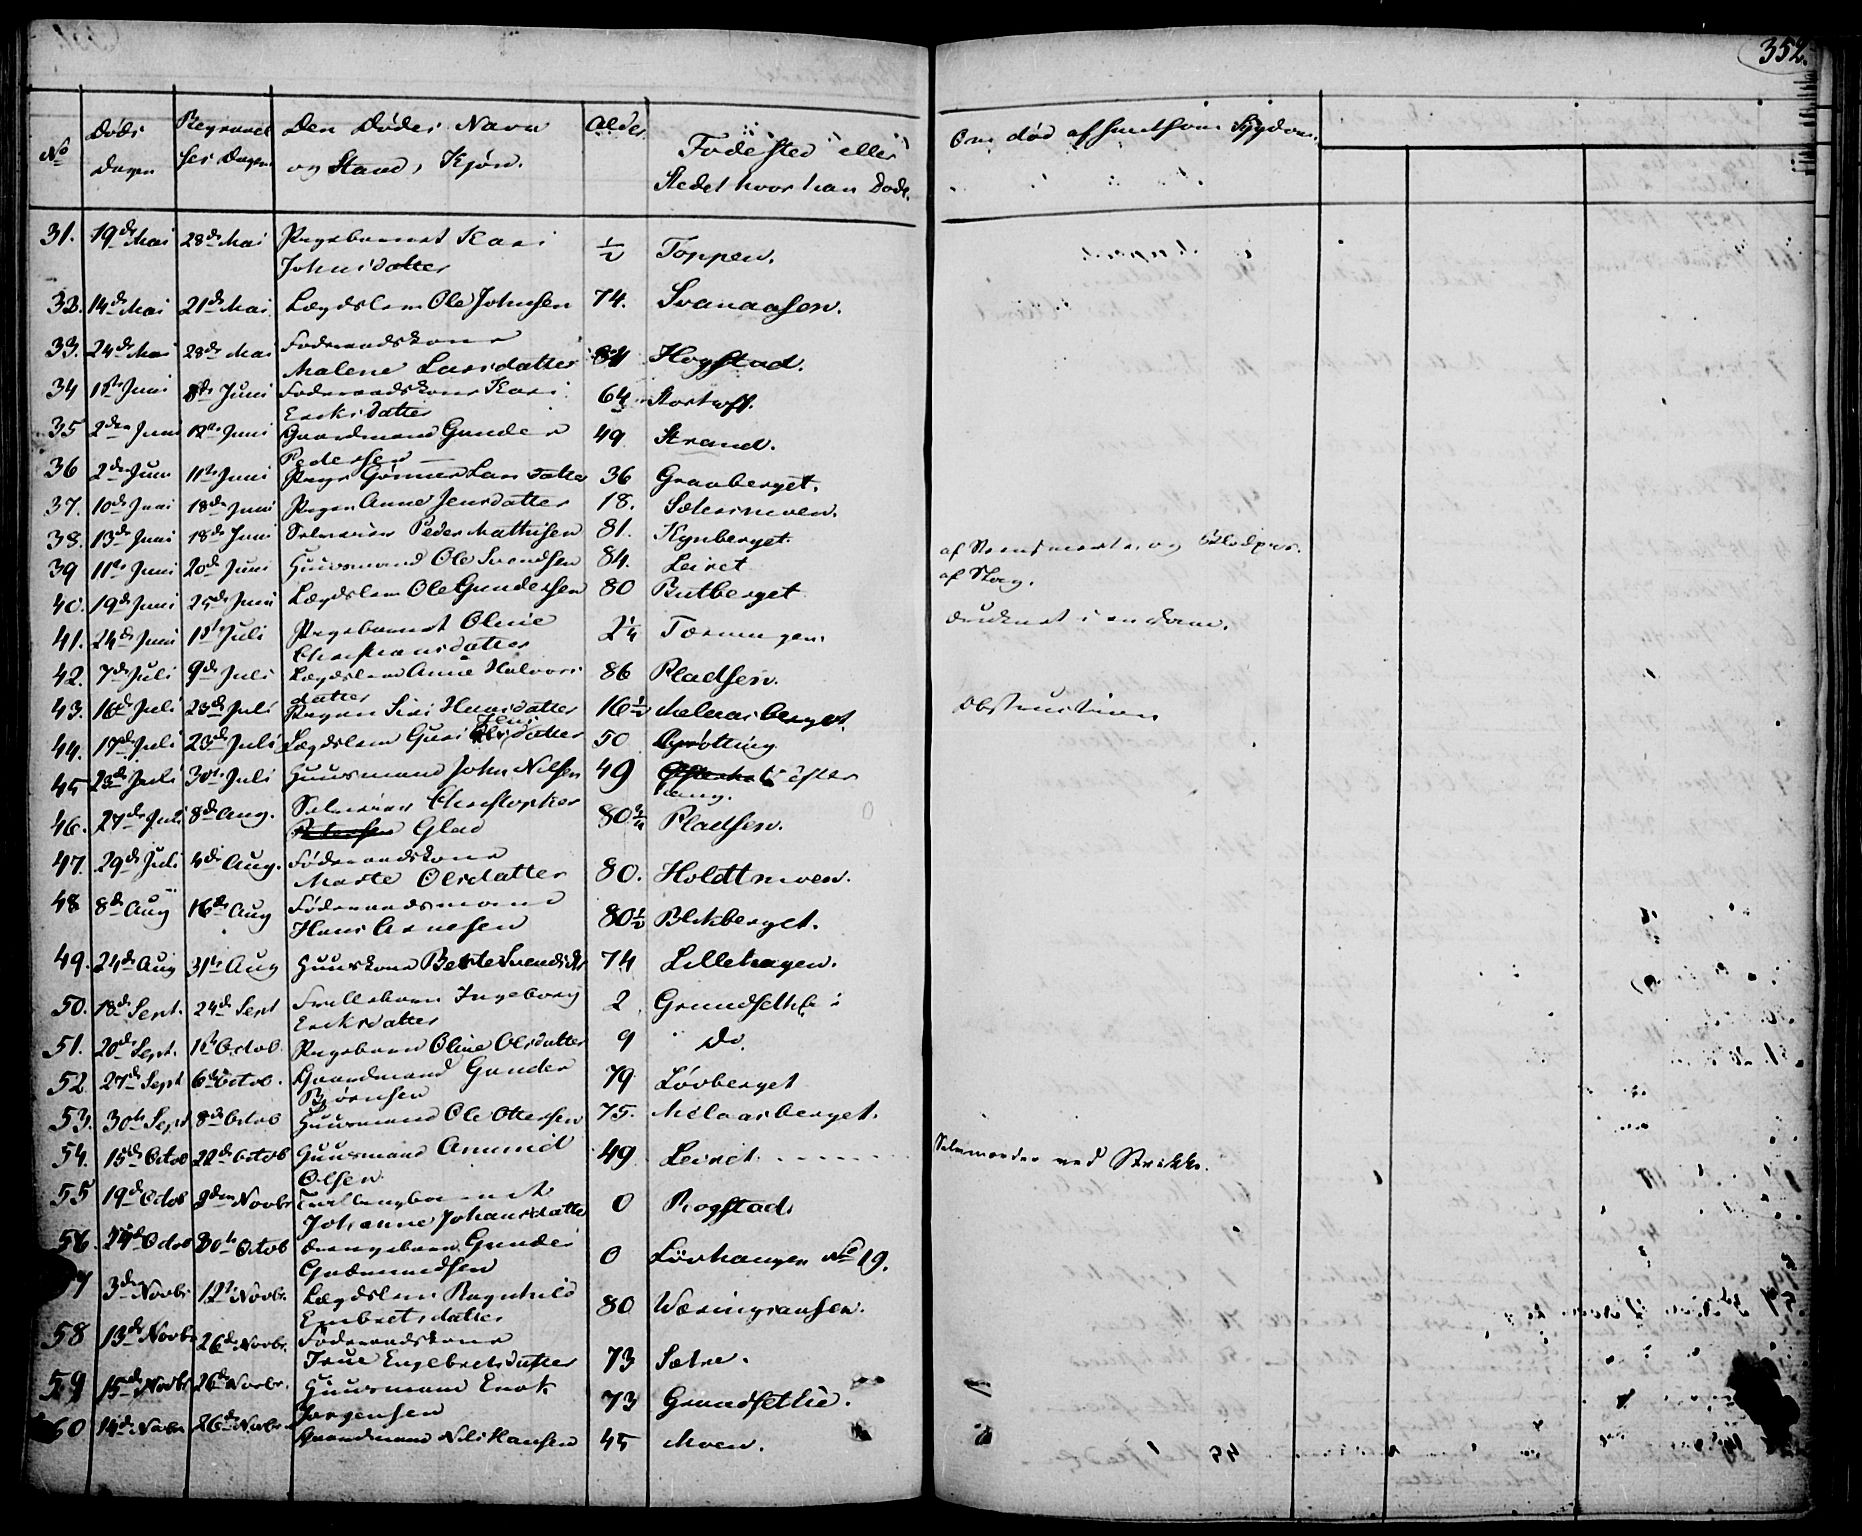 352.
No
Døds Dagen
Begravelses Dagen
Den Dødes Navn og Stand, Kjøn.
Alder
Fødested eller Stedet hvor han Døde.
Om død af smitsom Sygdom.
31. 19de Mai 28de Mai Pigebarnet Kari
Johnsdatter ½ Toppen.
32. 14de Mai 21de Mai Lægdslem Ole Johnsen 74. Svanaasen.
33. 24de Mai 28de Mai Føderaadskone
Malene Larsdatter 84 Hogstad.
34 1ste Juni 8de Juni Føderaadskone Kari
Eriksdatter 64 Stortoft.
35 2den Juni 12te Juni Gaardmand Gunder
Pedersen 49 Strand.
36 2den Juni 11te Juni Pige Gønner Larsdatter 36 Graaberget.
37. 10de Juni 18de Juni Pigen Anne Jensdatter 18. Sætermoen.
38. 13de Juni 18de Juni Peder Mathisen 81. Kynberget.
39 11te Juni 20de Juni Huusmand Ole Svendsen 84. Leiret
af Slag.
40. 19de Juni 25de Juni Lægdslem Ole Gundersen 80 Butberget
41. 24de Juni 1ste Juli Pigebarnet Oline
Christiansdatter 2¼ Terningen.
druknet i en Dam.
42. 7de Juli 9de Juli Lægdslem Anne Halvors
datter 86 Pladsen.
43. 16de Juli 23de Juli Pigen Siri Hansdatter 16½ Melaasberget.
Obstruction
44. 17de Juli 23de Juli Lægdslem Guri Jens datter 50 Grøtting
45 23de Juli 30te Juli Huusmand John Nilsen 49
46. 27de Juli 8de Aug. Christopher
Glad 80¾ Pladsen.
47. 29de Juli 4de Aug. Føderaadskone
Marte Olsdatter 80. Holdtmoen.
48 8de Aug 16de Aug Føderaadsmand
Hans Arnesen 80½ Blikberget.
49. 24de Aug 31te Aug Huuskone Berte Svendsdtr 74 Lillehagen.
50. 18de Sept. 24de Sept Ingeborg
Eriksdatter 2 Grundsethe
51. 20de Sept. 1ste Octob. Pigebarn Oline Olsdatter 9 do.
52. 27de Sept 6de Octob. Gaardmand Gunder
Bjørnsen 79 Løvberget
53. 30te Sept 8de Octob Huusmand Ole Ottersen 75. Melaasberget.
54. 15de Octob 22de Octob Huusmand Amund
Olsen 49 Leiret
Selvmorder ved Strikke.
55 19de Octob 2den Novbr Tvillingbarnet
Johanne Johansdatter 0 Rogstad
56. 24de Octob 30te Octob Drengebarn Gunder
Gudmundsen 0 Løvhaugen No 19.
57 3den Novbr 12te Novbr. Lægdslem Ragnhild
Embretsdatter 80 Væringsaasen.
58 13de Novbr 26de Novbr. Føderaadskone
True Engebretsdatter 73 Sætre.
59 15de Novbr 26de Novbr. Huusmand Erik
Jørgensen 73 Grundsethe.
60 14de Novbr 26de Novbr. Gaardmand Nils Hansen 45 Moen.